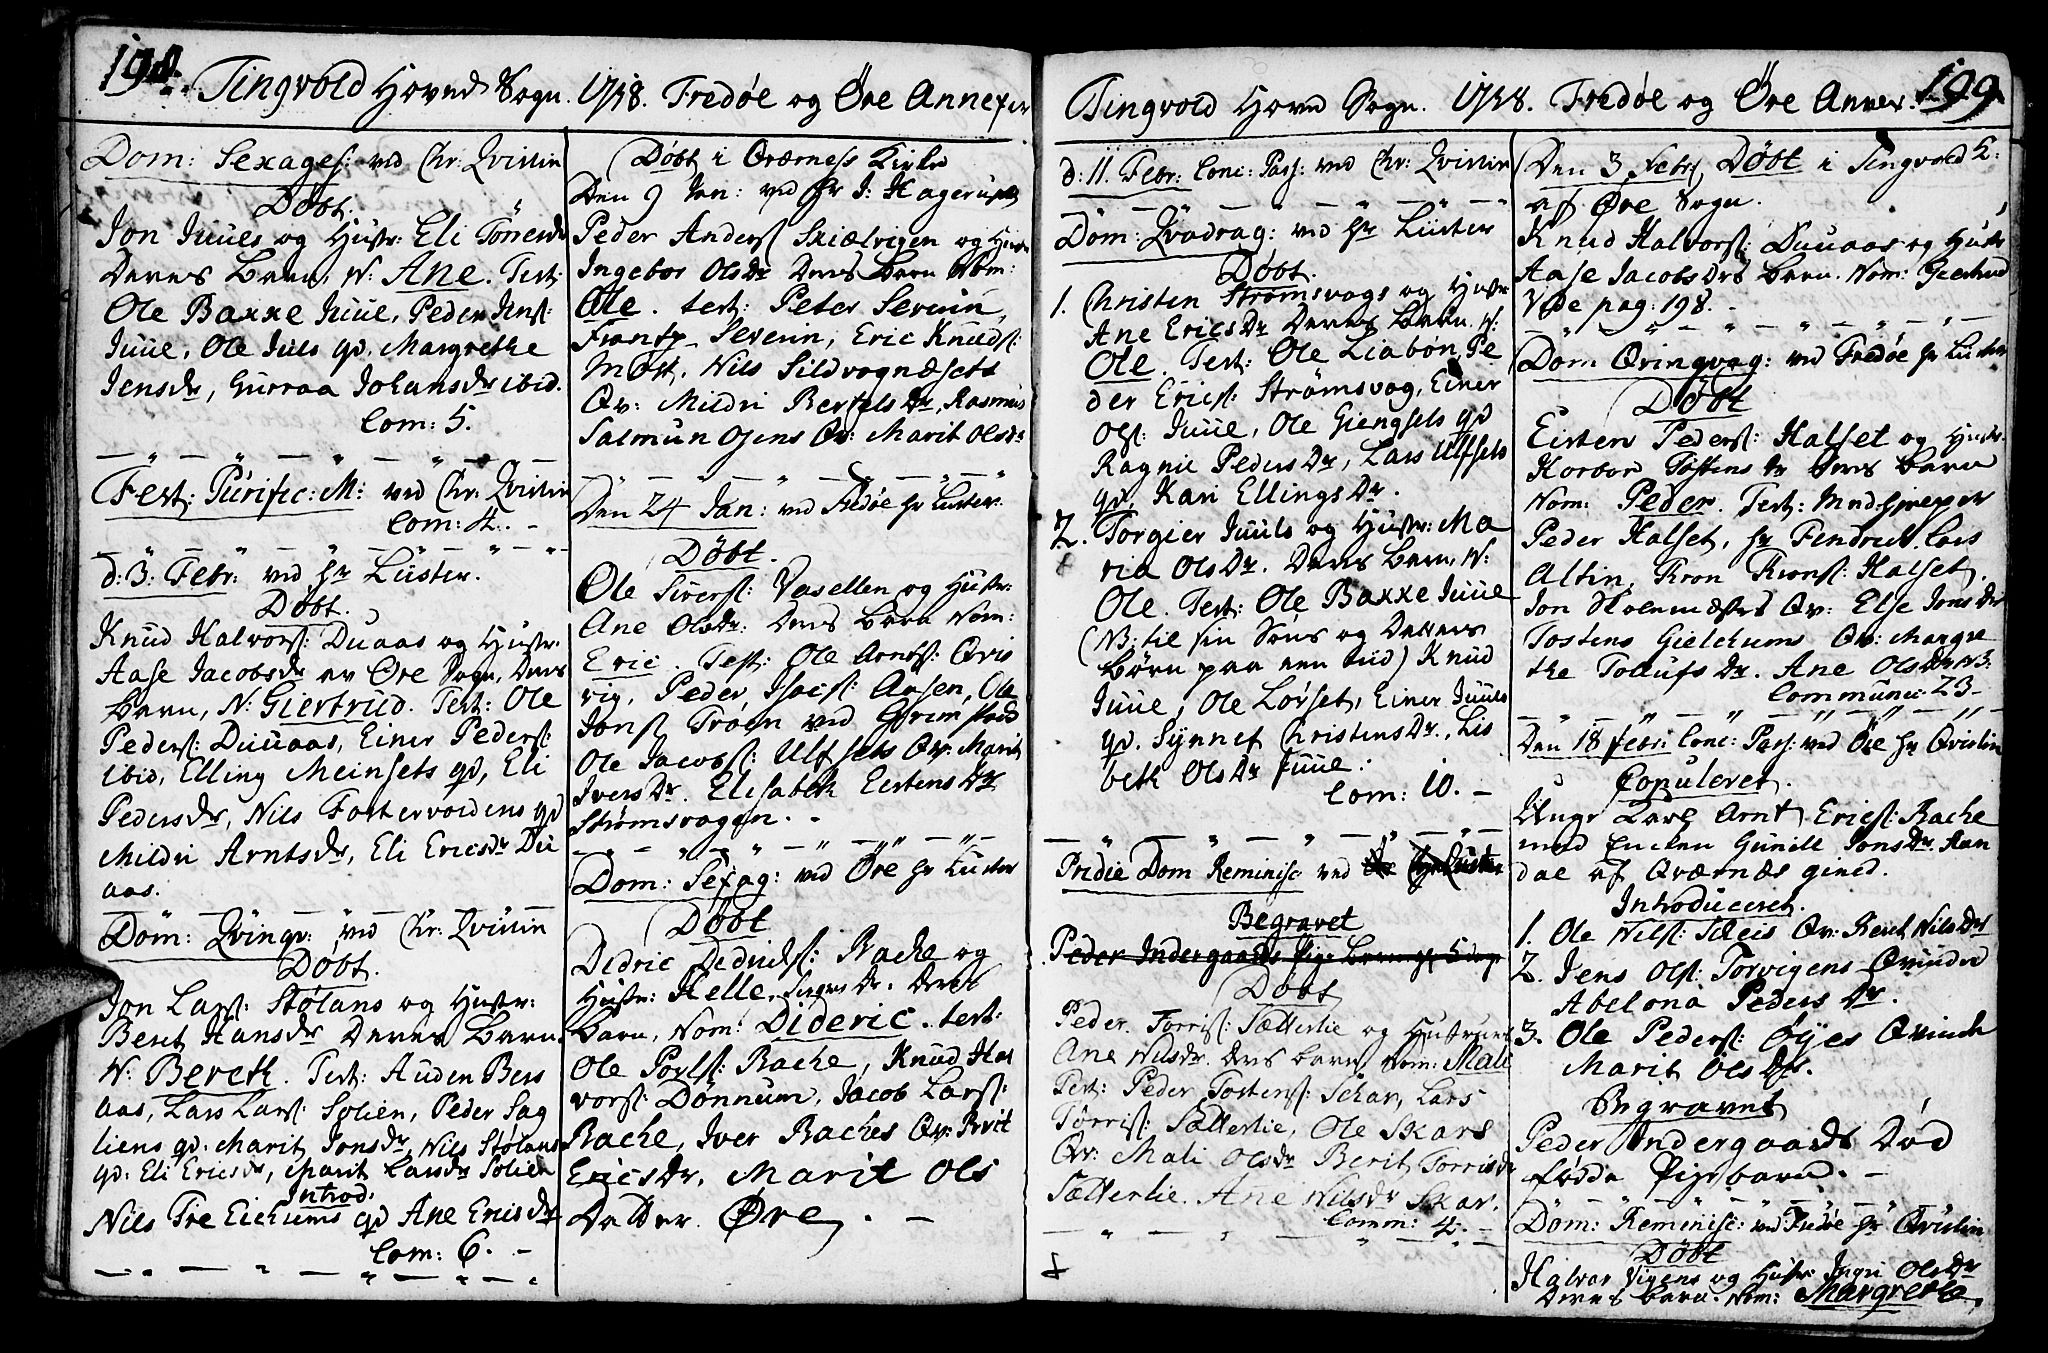 198. Tingvold Hovnd Sogn. 1758. Fredøe og Øre Annexer
Dom: Sexages: ved Chr: Qvislin
Døbt.
Jon Juuls og Hustr: Eli Tønesdr
Deres Barn, N: Ane. Test:
Ole Baxxe Juue, Peder Jens:
Juue, Ole Juls qv. Margrethe
Jensdr, Gurraa Johansdr ibid.
Com: 5.
Fest: Purific: M: ved Chr: Qvislin
Com: 4.
d: 3: Febr: ved Hr Lüster.
Døbt.
Knud Halvors: Duaas og Hustr:
Aase Jacobsdr av Øre Sogn, Deres
Barn, N: Giertrud. Test: Ole
Peders: Duuaas, Einer Peders:
ibid, Elling Meinsets qv, Eli
Pedersdr, Nils Fostervoldens qv
Mildri Arntsdr, Eli Ericsdr Du
aas.
Dom: Qvinqv: ved Chr: Qvislin
Døbt.
Jon Lars: Stølans og Hustr:
Beret Hansdr Deres Barn
N: Bereth. Test: Auden Bers
aas, Lars Lars: Solien, Peder Sag
liens qv: Marit Jonsdr, Nils Stølans
qv: Eli Ericsdr, Marit Larsdr Solien
Introd:
Nils Tre Eichums qv Ane Ericsdr
Com: 6.
Døbt i Qværness Kirke
Den 9 Jan: ved Hr J: Hagerup
Peder Anders: Skiælvigen og Hustr
Ingebor Olsdr Deres Barn Nom:
Ole. test: Peter Severin,
Frantz Severin, Eric Knuds:
Møst, Nils Sildvognæsets
Qv: Mildri Bertelsdr, Rasmus
Salmun Ogens Qv: Marit Olsdr
Den 24 Jan: ved Fredøe Hr Luster.
Døbt.
Ole Sivers: Vasellen og Hustr:
Ane Olsdr: Deres Barn Nom:
Eric. Test: Ole Arnts: Qvis
vig, Peder Isacs: Aasen, Ole
Jons: Trøen ved Grimstad
Ole Jacobs: Ulfsets Qv: Marit
Iversdr. Elisabeth Eistensdr
Strømsvagen.
Dom: Sexag: ved Øre Hr Luster
Døbt
Didric Didrichs: Bache og
Hustr: Helle Deres
Barn, Nom: Dideric. test:
Ole Pouls: Bache, Knud Hal
vors: Dønnum, Jacob Lars:
Bache, Iver Baches Qv: Brit
Ericsdr, Marit Ols
Datter Øre.
Tingvold Hovnd Sogn. 1758. Fredøe og Øre Annex. 199
d: 11. Febr: Conc: Pass: ved Chr: Qvislin
Dom: Qvadrag: ved Hr Lüster
Døbt.
1. Christen Strømsvags og Hustr
Ane Ericsdr Deres Barn. N:
Ole. Test: Ole Liabøn, Pe
der Erics: Strømsvag, Einer
Ols: Juue, Ole Giengsets qv
Ragnil Pedersdr, Lars Ulfsets
qv Kari Ellingsdr.
2. Torgier Juuls og Hustr: Ma
ria Olsdr. Deres Barn, N:
Ole. Test: Ole Baxxe Juue
(NB: til sin Søns og Datters
Børn paa een tid) Knud
Juue, Ole Lørset, Einer Juuls
qv. Synnef Christensdr., Lis
beth Olsdr Juue.
Com: 10.
Pridie Dom Reminisc ved
Begravet
Peder Indergaards Pige Barn
Døbt
Peder Torris: Sætterlie og Hustrues
Ane Nilsdr. Deres barn, Nom: Mali
Test: Peder Tostens: Schar, Lars
Torris: Sætterlie, Ole Skars
Qv: Mali Olsdr Berit Torrisdr
Sætterlie. Ane Nilsdr Skar.
Comm: 4.
Den 3 Febr, Døbt i Tingvold K:
af Øre Sogn.
Knud Halvors: Duuaas og Hustr
Aase Jacobsdrs barn. Nom: Giertrud
Vide pag: 198.
Dom Qvinqvag: ved Fredøe Hr Luster
Døbt
Eisten Peders: Halset og Hustr.
Korbor Tostensdr Deres Barn
Nom: Peder. Test: Mads:
Peder Halset, Hr Fendrich Lars
Altin, Kron Krons: Halset.
Jon Skolemæsters Qv: Else Jonsdr
Tostens Gielchums Qv: Margre
the Tollufsdr. Ane Olsdr
Communic: 23
Den 18 Febr: Conc: Pass: ved Øre Hr Qvislin
Copuleret.
Ungr Karl Arnt Erics: Bache
med Encken Gunild Jonsdr. Aan
dal af Qværnæs gield.
Introduceret.
1. Ole Nils: Scheis Qv: Beret Nilsdr
2. Jens Ols: Torvigens Qvinde
Abelona Pedersdr.
3. Ole Peders: Øyes Qvinde
Marit Olsdr.
Begravet
Peder Indergaards Død
fødde Pigebarn.
Dom: Reminisc: ved Fredøe Hr Qvislin
Døbt
Halvor Vigens og Hustr Ingri Olsdr
Deres barn. Nom: Margrethe,